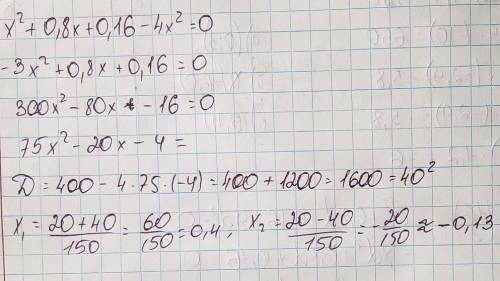 x² + 0,8x + 0,16 - 4x² = 0
-3x² + 0,8x + 0,16 = 0
300x² - 80x - 16 = 0
75x² - 20x - 4 =
D = 400 - 4·75·(-4) = 400 + 1200 = 1600 = 40²
x₁ = (20+40)/150 = 60/150 = 0,4; x₂ = (20-40)/150 = -20/150 ≈ -0,13